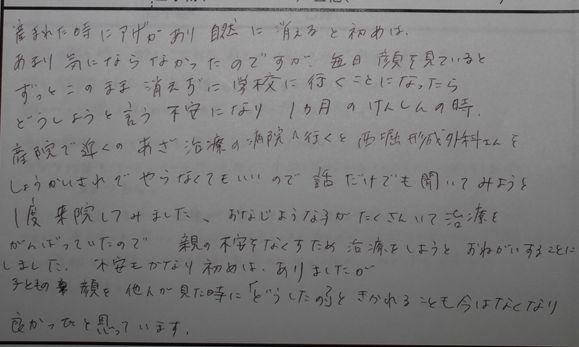 産まれた時にアザがあり自然に消えると初めは、
あまり気にならなかったのですが、毎日顔を見ていると
ずっとこのまま消えずに学校に行くことになったら
どうしようと言う不安になり 1ヵ月のけんしんの時、
産院で近くのあざ治療の病院へ行くと西堀形成外科さんを
しょうかいされて やらなくてもいいので話だけでも聞いてみようと
1度来院してみました、おなじような子がたくさんいて治療を
がんばっていたので 親の不安をなくすため治療をしようとおねがいすることに
しました. 不安もかなり初めは、ありましたが
子どもの顔を他人が見た時に「どうしたの」ときかれることも今はなくなり
良かったと思っています.